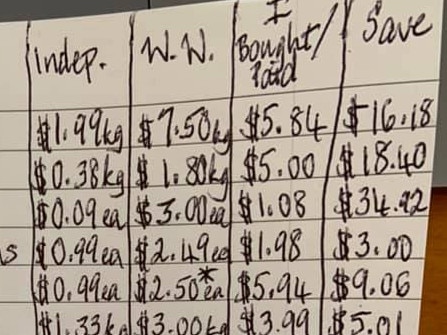 Indep. W.W. I Bought/Paid Save
$1.99kg $7.50kg $5.84 $16.18
$0.38kg $1.80kg $5.00 $18.40
$0.09ea $3.00ea $1.08 $34.92
s $0.99ea $2.49ea $1.98 $3.00
$0.99ea $2.50*ea $5.94 $9.06
$1.33kg $3.00kg $3.99 $5.01